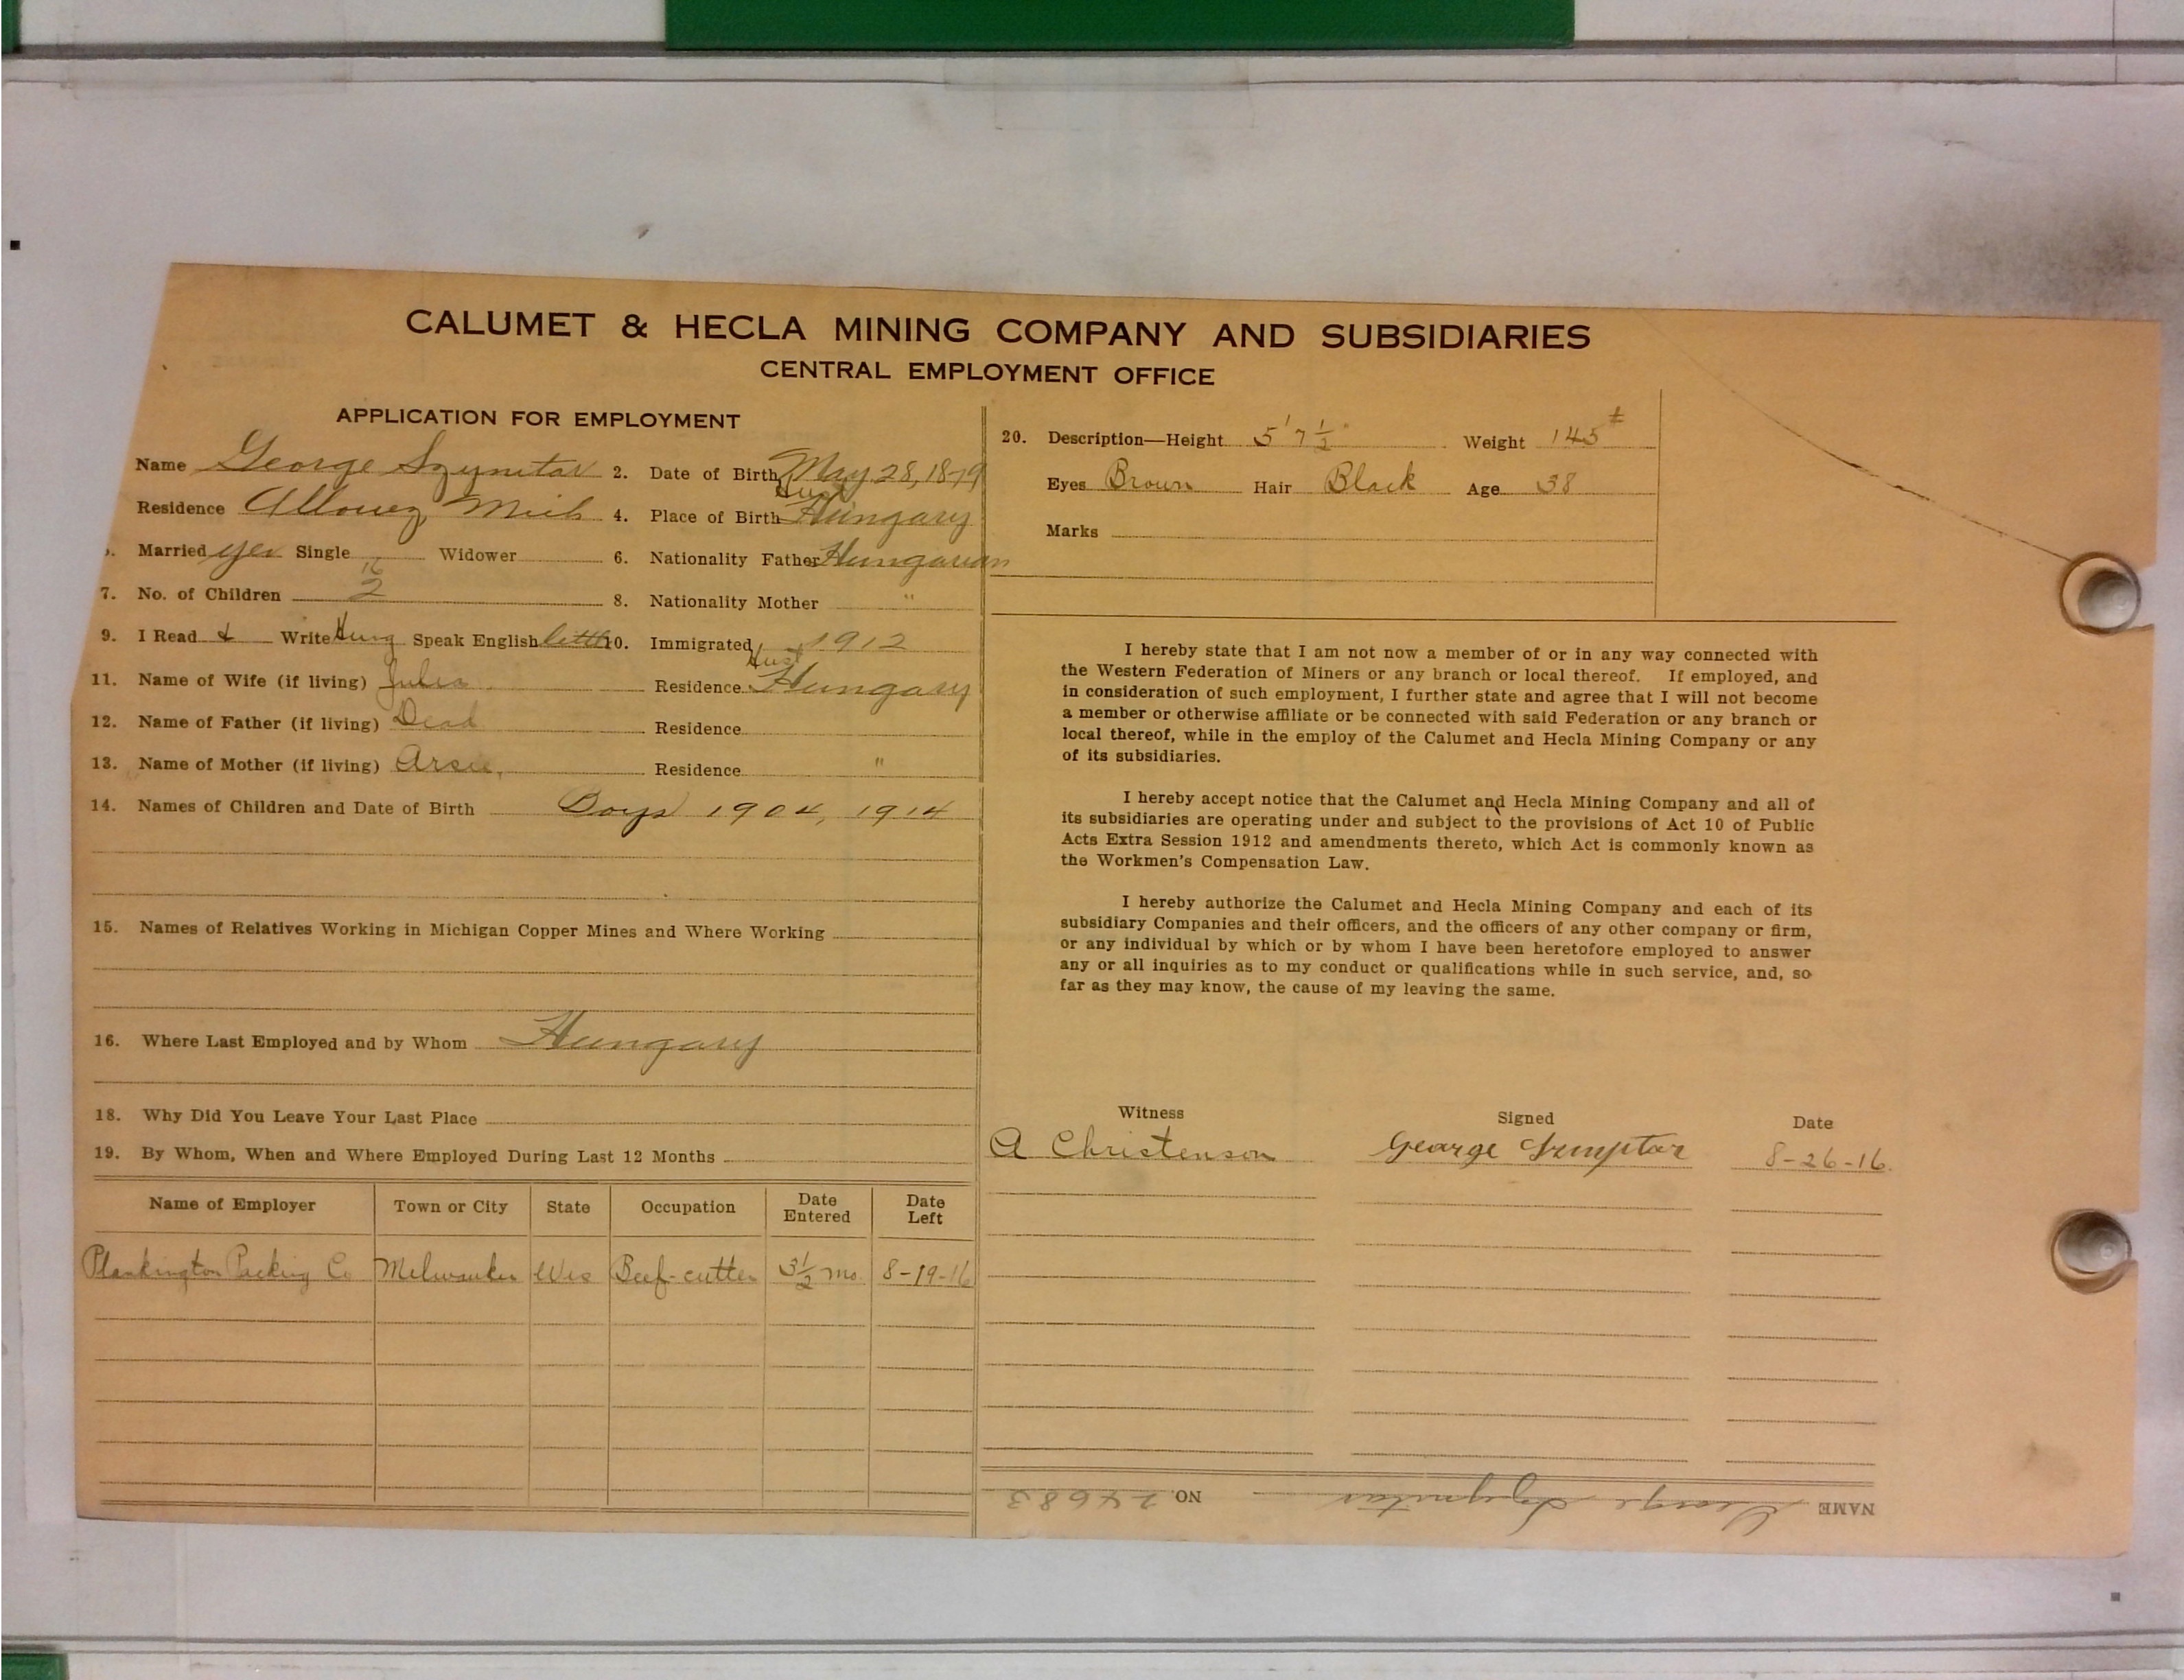 CALUMET & HECLA MINING COMPANY AND SUBSIDIARIES
CENTRAL EMPLOYMENT OFFICE
APPLICATION FOR EMPLOYMENT
Name George Szynitar 2. Date of Birth May 28, 1879
Residence Allouez Mich 4. Place of Birth Hust Hungary
Married yes Single Widower 6. Nationality Father Hungarian
7. No. of Children 2 8. Nationality Mother "
9. I Read & Write Hung Speak English little 10. Immigrated 1912
11. Name of Wife (if living) Julia Residence Hust Hungary
12. Name of Father (if living) Dead Residence
13. Name of Mother (if living) Residence "
14. Names of Children and Date of Birth Boys 1904, 1914
15. Names of Relatives Working in Michigan Copper Mines and Where Working
16. Where Last Employed and by Whom Hungary
18. Why Did You Leave Your Last Place
19. By Whom, When and Where Employed During Last 12 Months
Name of Employer Town or City State Occupation Date Entered Date Left
Plankington Packing Co Milwaukee Wis Beef-cutter 3½ mo. 8-19-16
20. Description—Height 5' 7½" Weight 145#
Eyes Brown Hair Black Age 38
Marks
I hereby state that I am not now a member of or in any way connected with
the Western Federation of Miners or any branch or local thereof. If employed, and
in consideration of such employment, I further state and agree that I will not become
a member or otherwise affiliate or be connected with said Federation or any branch or
local thereof, while in the employ of the Calumet and Hecla Mining Company or any
of its subsidiaries.
I hereby accept notice that the Calumet and Hecla Mining Company and all of
its subsidiaries are operating under and subject to the provisions of Act 10 of Public
Acts Extra Session 1912 and amendments thereto, which Act is commonly known as
the Workmen's Compensation Law.
I hereby authorize the Calumet and Hecla Mining Company and each of its
subsidiary Companies and their officers, and the officers of any other company or firm,
or any individual by which or by whom I have been heretofore employed to answer
any or all inquiries as to my conduct or qualifications while in such service, and, so
far as they may know, the cause of my leaving the same.
Witness Signed Date
A Christenson George 8-26-16.
NAME George Szynitar NO. 24683